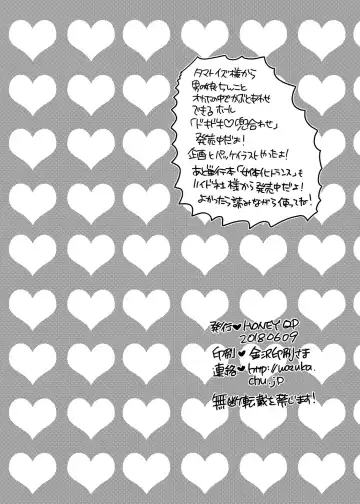 タマトイズ様から
男の娘ちんこと
オナホの中でかぶとあわせ
できるホール
「ドキドキ♡兜合わせ」
発売中だよ!
企画とパッケイラストやったよ!
あと単行本「女体化トランス」も
様から発売中だよ!
よかったら読みながら使ってね!
発行♥HONEY QP
20180609
印刷♥金沢印刷さま
連絡♥http://wozuka.
chu.jp
無断転載を禁じます!